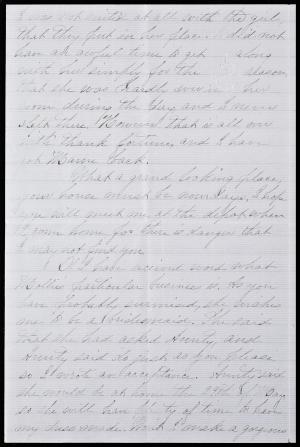 I was not suited at all with the girl
that they put in her place. I did not
have an awful time to get along
with her simply for the reason
that she was hardly ever in her
room during the day and I never
slept there. However that is all over
with thank fortune, and I have
back.
What a grand looking place
your house must be nowadays. I hope
you will meet me at the depot when
I come home for there is danger that
I may not find you.
I have received word what
Mollie's particular business is. As you
have probably surmised, she wants
me to be a bridesmaid. She said
that she had asked Aunty, and
Aunty said do just as you please
so I wrote an acceptance. Aunty said
she would be at home the 29th of May
so she will have plenty of time to have
my dress made. Won't I make a gorgeous